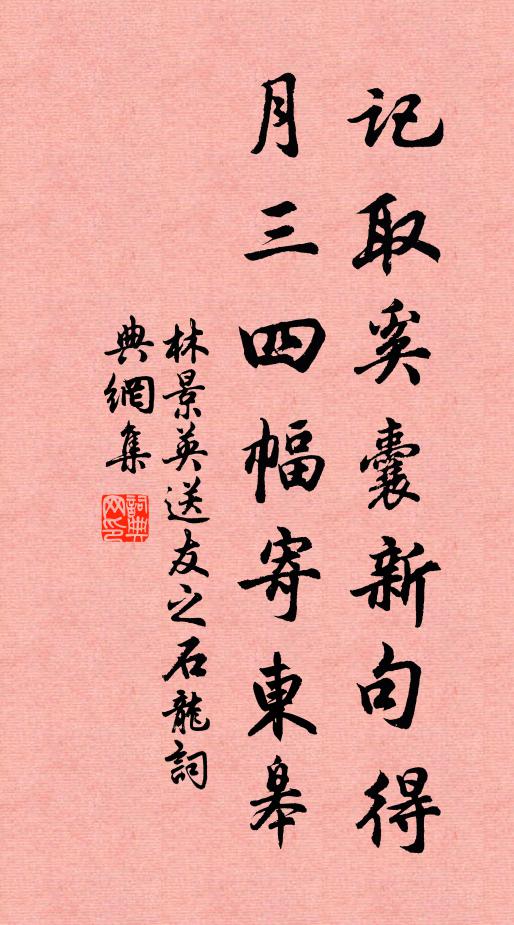 記取奚囊新句得
月三四幅寄東皋
林景英送友之石龍詞
典網集
詞典网印